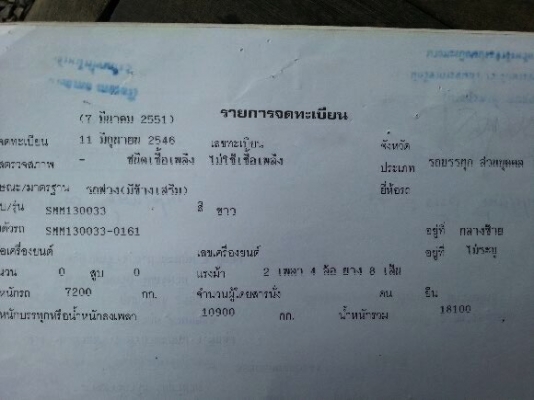 (7 มีนาคม 2551) รายการจดทะเบียน
จดทะเบียน 11 มิถุนายน 2546 เลขทะเบียน จังหวัด
ตรวจสภาพ - ชนิดเชื้อเพลิง ไม่ใช้เชื้อเพลิง ประเภท รถบรรทุก ส่วนบุคคล
ษณะ/มาตรฐาน รถพ่วง(มีข้างเสริม) ยี่ห้อรถ
บ/รุ่น SMM130033 สี ขาว
ตัวรถ SMM130033-0161 อยู่ที่ กลางซ้าย
อเครื่องยนต์ เลขเครื่องยนต์ อยู่ที่ ไม่ระบุ
นวน 0 สูบ 0 แรงม้า 2 เพลา 4 ล้อ ยาง 8 เส้น
หนักรถ 7200 กก. จำนวนผู้โดยสารนั่ง คน ยืน
หนักบรรทุกหรือน้ำหนักลงเพลา 10900 กก. น้ำหนักรวม 18100